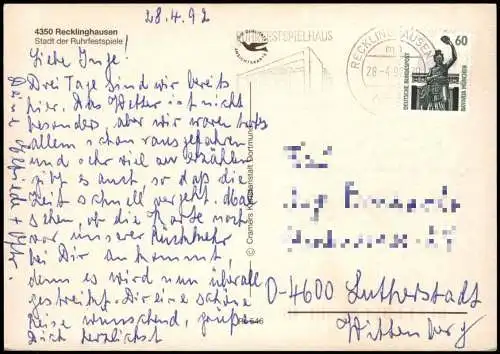 28.4.92
4350 Recklinghausen
Stadt der Ruhrfestspiele
Liebe Inge!
Drei Tage sind wir bereits
hier. Das Wetter ist nicht
besonders aber wir waren trotz
allem schon rausgefahren
und sehr viel zu erzählen
gibt es auch so daß die
Zeit schnell vergeht. Mal
sehen, ob die Karte noch
vor unserer Rückkehr
bei Dir ankommt,
denn es wird nun überall
gestreikt. Dir eine schöne
Reise wünschend, grüßt
Dich herzlichst
Deine
© Cramers Kunstanstalt Dortmund
Re 546
RUHRFESTSPIELHAUS
RECKLINGHAUSEN
28-4.92
60
DEUTSCHE BUNDESPOST
BAVARIA MÜNCHEN
D-4600 Lutherstadt
Wittenberg